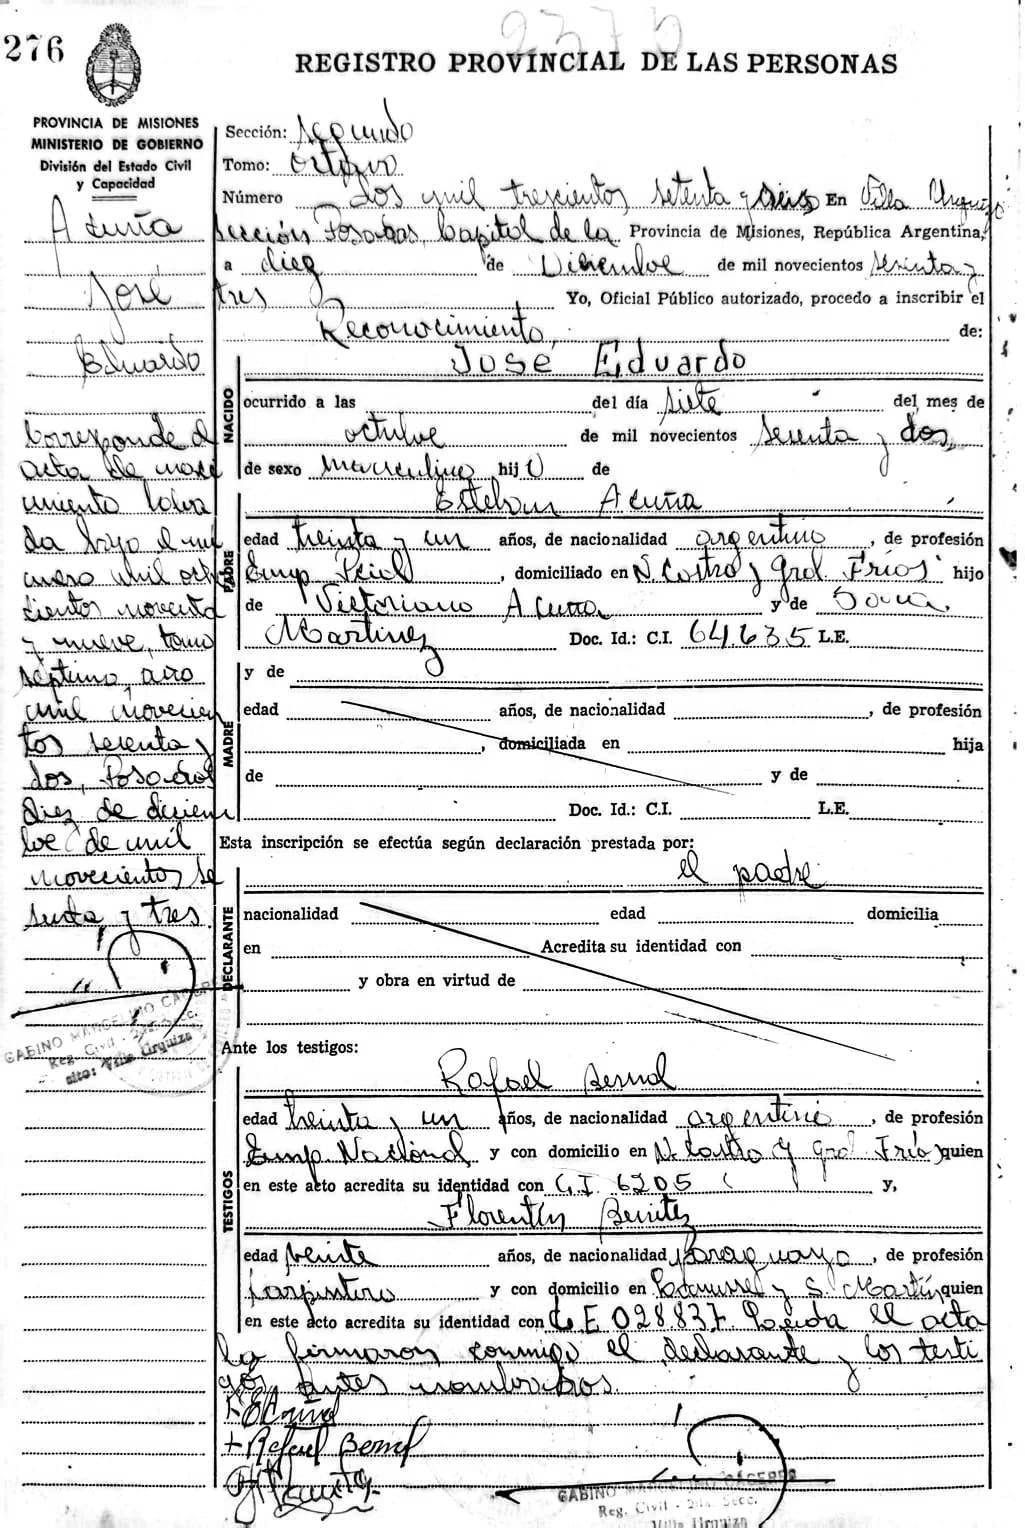 276
2375
REGISTRO PROVINCIAL DE LAS PERSONAS
PROVINCIA DE MISIONES
MINISTERIO DE GOBIERNO
División del Estado Civil
y Capacidad
Acuña
José
Eduardo
Corresponde al
acta de naci
miento labra
da bajo el nú
mero mil ocho
cientos noventa
y nueve, tomo
septimo, año
mil novecien
tos setenta y
dos, Posadas
diez de diciem
bre de mil
novecientos se
tenta y tres
GABINO MARCELINO CACERES
Reg. Civil - 2da. Secc.
Villa Urquiza
Sección: segundo
Tomo: octavo
Número dos mil trescientos setenta y seis En Villa Urquiza
sección Posadas, Capital de la Provincia de Misiones, República Argentina,
a diez de Diciembre de mil novecientos setenta y
tres Yo, Oficial Público autorizado, procedo a inscribir el
Reconocimiento, de:
José Eduardo
NACIDO
ocurrido a las del día siete del mes de
octubre de mil novecientos setenta y dos,
de sexo masculino hijo de
Esteban Acuña
PADRE
edad treinta y un años, de nacionalidad argentino, de profesión
Emp. Pcial, domiciliado en N. Castro y Gral. Frías hijo
de Victoriano Acuña y de
Martinez Doc. Id.: C.I. 64.635 L.E.
y de
MADRE
edad años, de nacionalidad , de profesión
, domiciliada en hija
de y de
Doc. Id.: C.I. L.E.
Esta inscripción se efectúa según declaración prestada por:
el padre
DECLARANTE
nacionalidad edad domicilia
en Acredita su identidad con
y obra en virtud de
Ante los testigos:
Rafael Bernal
TESTIGOS
edad treinta y un años, de nacionalidad argentino, de profesión
Emp. Nacional y con domicilio en N. Castro y Gral. Frías quien
en este acto acredita su identidad con C.I. 6205 y,
Florentín Benitez
edad veinte años, de nacionalidad paraguayo, de profesión
carpintero y con domicilio en y S. Martín quien
en este acto acredita su identidad con 028.837. Leida el acta
la firmaron conmigo el declarante y los testi
gos antes nombrados.
EAcuña
Rafael Bernal
GABINO MARCELINO CACERES
Reg. Civil - 2da. Secc.
Villa Urquiza